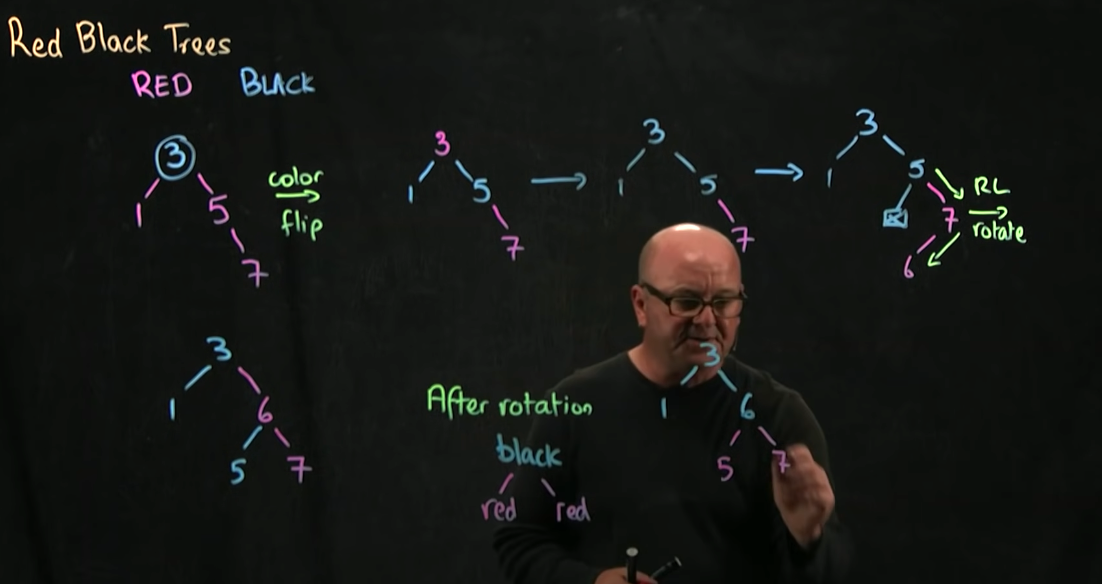 Red Black Trees
RED BLACK
3
1 5
7
color
flip
3
1 5
7
3
1 5
7
3
1 5
7
6
RL
rotate
3
1 6
5 7
After rotation
black
red red
3
1 6
5 7